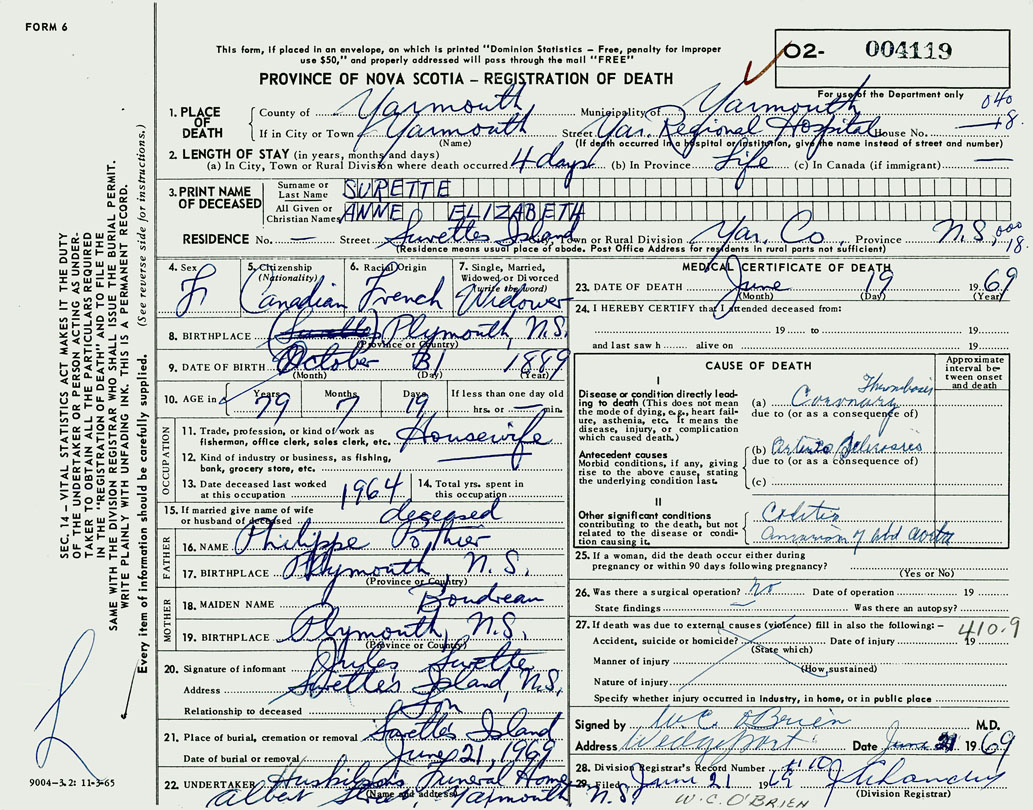 FORM 6
This form, if placed in an envelope, on which is printed "Dominion Statistics – Free, penalty for improper
use $50," and properly addressed will pass through the mail "FREE"
PROVINCE OF NOVA SCOTIA – REGISTRATION OF DEATH
O2- 004119
For use of the Department only
040
18.
1. PLACE OF DEATH
County of Yarmouth Municipality of Yarmouth
If in City or Town Yarmouth Street Yar. Regional Hospital House No. —
(Name) (If death occurred in a hospital or institution, give the name instead of street and number)
2. LENGTH OF STAY (in years, months and days)
(a) In City, Town or Rural Division where death occurred 4 days (b) In Province Life (c) In Canada (if immigrant) —
3. PRINT NAME OF DECEASED
Surname or Last Name SURETTE
All Given or Christian Names ANNE ELIZABETH
RESIDENCE No. — Street Surettes Island City, Town or Rural Division Yar. Co Province N.S. 000
18.
(Residence means usual place of abode. Post Office Address for residents in rural parts not sufficient)
4. Sex F
5. Citizenship (Nationality) Canadian
6. Racial Origin French
7. Single, Married, Widowed or Divorced (write the word) Widower
8. BIRTHPLACE Plymouth, N.S.
(Province or Country)
9. DATE OF BIRTH October 31 1889
(Month) (Day) (Year)
10. AGE in Years 79 Months 7 Days 19 If less than one day old
hrs. or — min.
OCCUPATION
11. Trade, profession, or kind of work as
fisherman, office clerk, sales clerk, etc. Housewife
12. Kind of industry or business, as fishing,
bank, grocery store, etc.
13. Date deceased last worked
at this occupation 1964
14. Total yrs. spent in
this occupation
15. If married give name of wife
or husband of deceased deceased
FATHER
16. NAME Philippe Pothier
17. BIRTHPLACE Plymouth N. S.
(Province or Country)
MOTHER
18. MAIDEN NAME Boudreau
19. BIRTHPLACE Plymouth, N.S.
(Province or Country)
20. Signature of informant Jules Surette
Address Surette's Island, N.S.
Relationship to deceased Son
21. Place of burial, cremation or removal Surette's Island
Date of burial or removal June 21, 1969
22. UNDERTAKER Huskilson's Funeral Home
(Name and address)
Albert Street, Yarmouth N.S.
MEDICAL CERTIFICATE OF DEATH
23. DATE OF DEATH June 19 1969
(Month) (Day) (Year)
24. I HEREBY CERTIFY that I attended deceased from:
19 to 19
and last saw h alive on 19
CAUSE OF DEATH
Approximate interval between onset and death
I
Disease or condition directly leading to death (This does not mean the mode of dying, e.g., heart failure, asthenia, etc. It means the disease, injury, or complication which caused death.)
(a) Coronary Thrombosis
due to (or as a consequence of)
Antecedent causes
Morbid conditions, if any, giving rise to the above cause, stating the underlying condition last.
(b) Arterio Sclerosis
due to (or as a consequence of)
(c)
II
Other significant conditions
contributing to the death, but not
related to the disease or condition causing it.
abd aorta
25. If a woman, did the death occur either during
pregnancy or within 90 days following pregnancy?
(Yes or No)
26. Was there a surgical operation? No Date of operation 19
State findings Was there an autopsy?
27. If death was due to external causes (violence) fill in also the following: –
410.9
Accident, suicide or homicide? Date of injury 19
(State which)
Manner of injury
(How sustained)
Nature of injury
Specify whether injury occurred in Industry, in home, or in public place
Signed by W.C. O'Brien M.D.
Address Wedgeport Date June 21 1969
28. Division Registrar's Record Number #10
29. Filed June 21 1969
(Division Registrar)
W.C. O'BRIEN
SEC. 14 – VITAL STATISTICS ACT MAKES IT THE DUTY
OF THE UNDERTAKER OR PERSON ACTING AS UNDER-
TAKER TO OBTAIN ALL THE PARTICULARS REQUIRED
IN THE "REGISTRATION OF DEATH" AND TO FILE THE
SAME WITH THE DIVISION REGISTRAR WHO SHALL ISSUE THE BURIAL PERMIT.
WRITE PLAINLY WITH UNFADING INK. THIS IS A PERMANENT RECORD.
Every item of information should be carefully supplied. (See reverse side for instructions.)
9004–3.2: 11-3-65